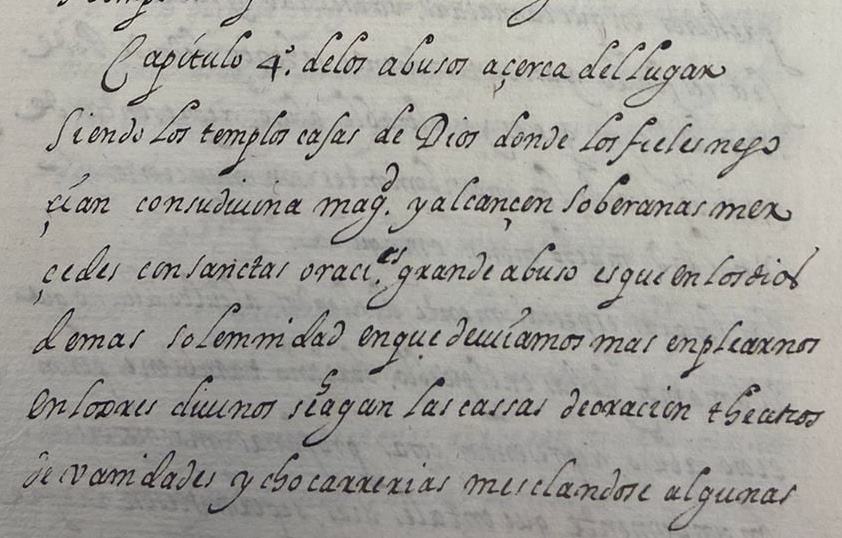 Capítulo 4º. delos abusos açerca del lugar
Siendo los templos casas de Dios donde los fieles nego
çian consudiuina magd. y alcançen soberanas mer
çedes con sanctas oracies. grande abuso es que en los dias
de mas solemnidad en que deuiamos mas enplearnos
en loores diuinos se hagan las cassas de oracion theatros
de vanidades y chocarrerias mesclandose algunas